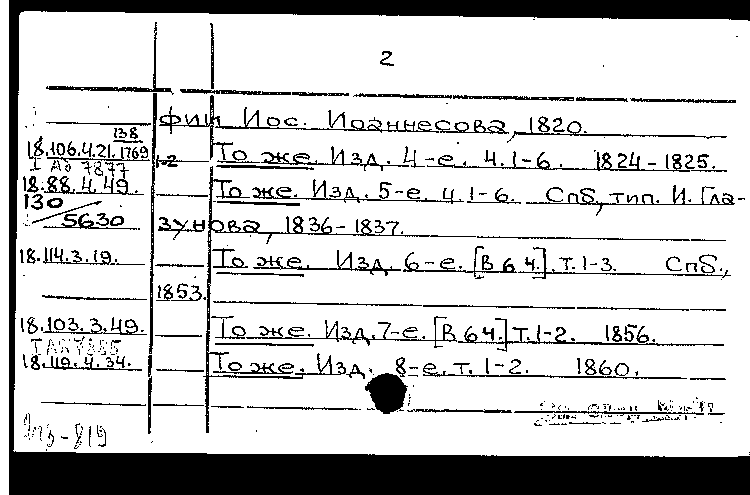 2
фии Иос. Иоаннесова, 1820.
138
18.106.4.21. 1769 1-2 То же. Изд. 4-е. ч. 1-6. 1824-1825.
I AД 7877
18.88.4.49. То же. Изд. 5-е. ч. 1-6. Спб., тип. И. Гла-
130
5630 зунова, 1836-1837.
18.114.3.19. То же. Изд. 6-е. [В 6 ч.]. т. 1-3. Спб.,
1853.
18.103.3.49. То же. Изд. 7-е. [В 6 ч.] т. 1-2. 1856.
18.119.4.34. То же. Изд. 8-е. т. 1-2. 1860.
-819